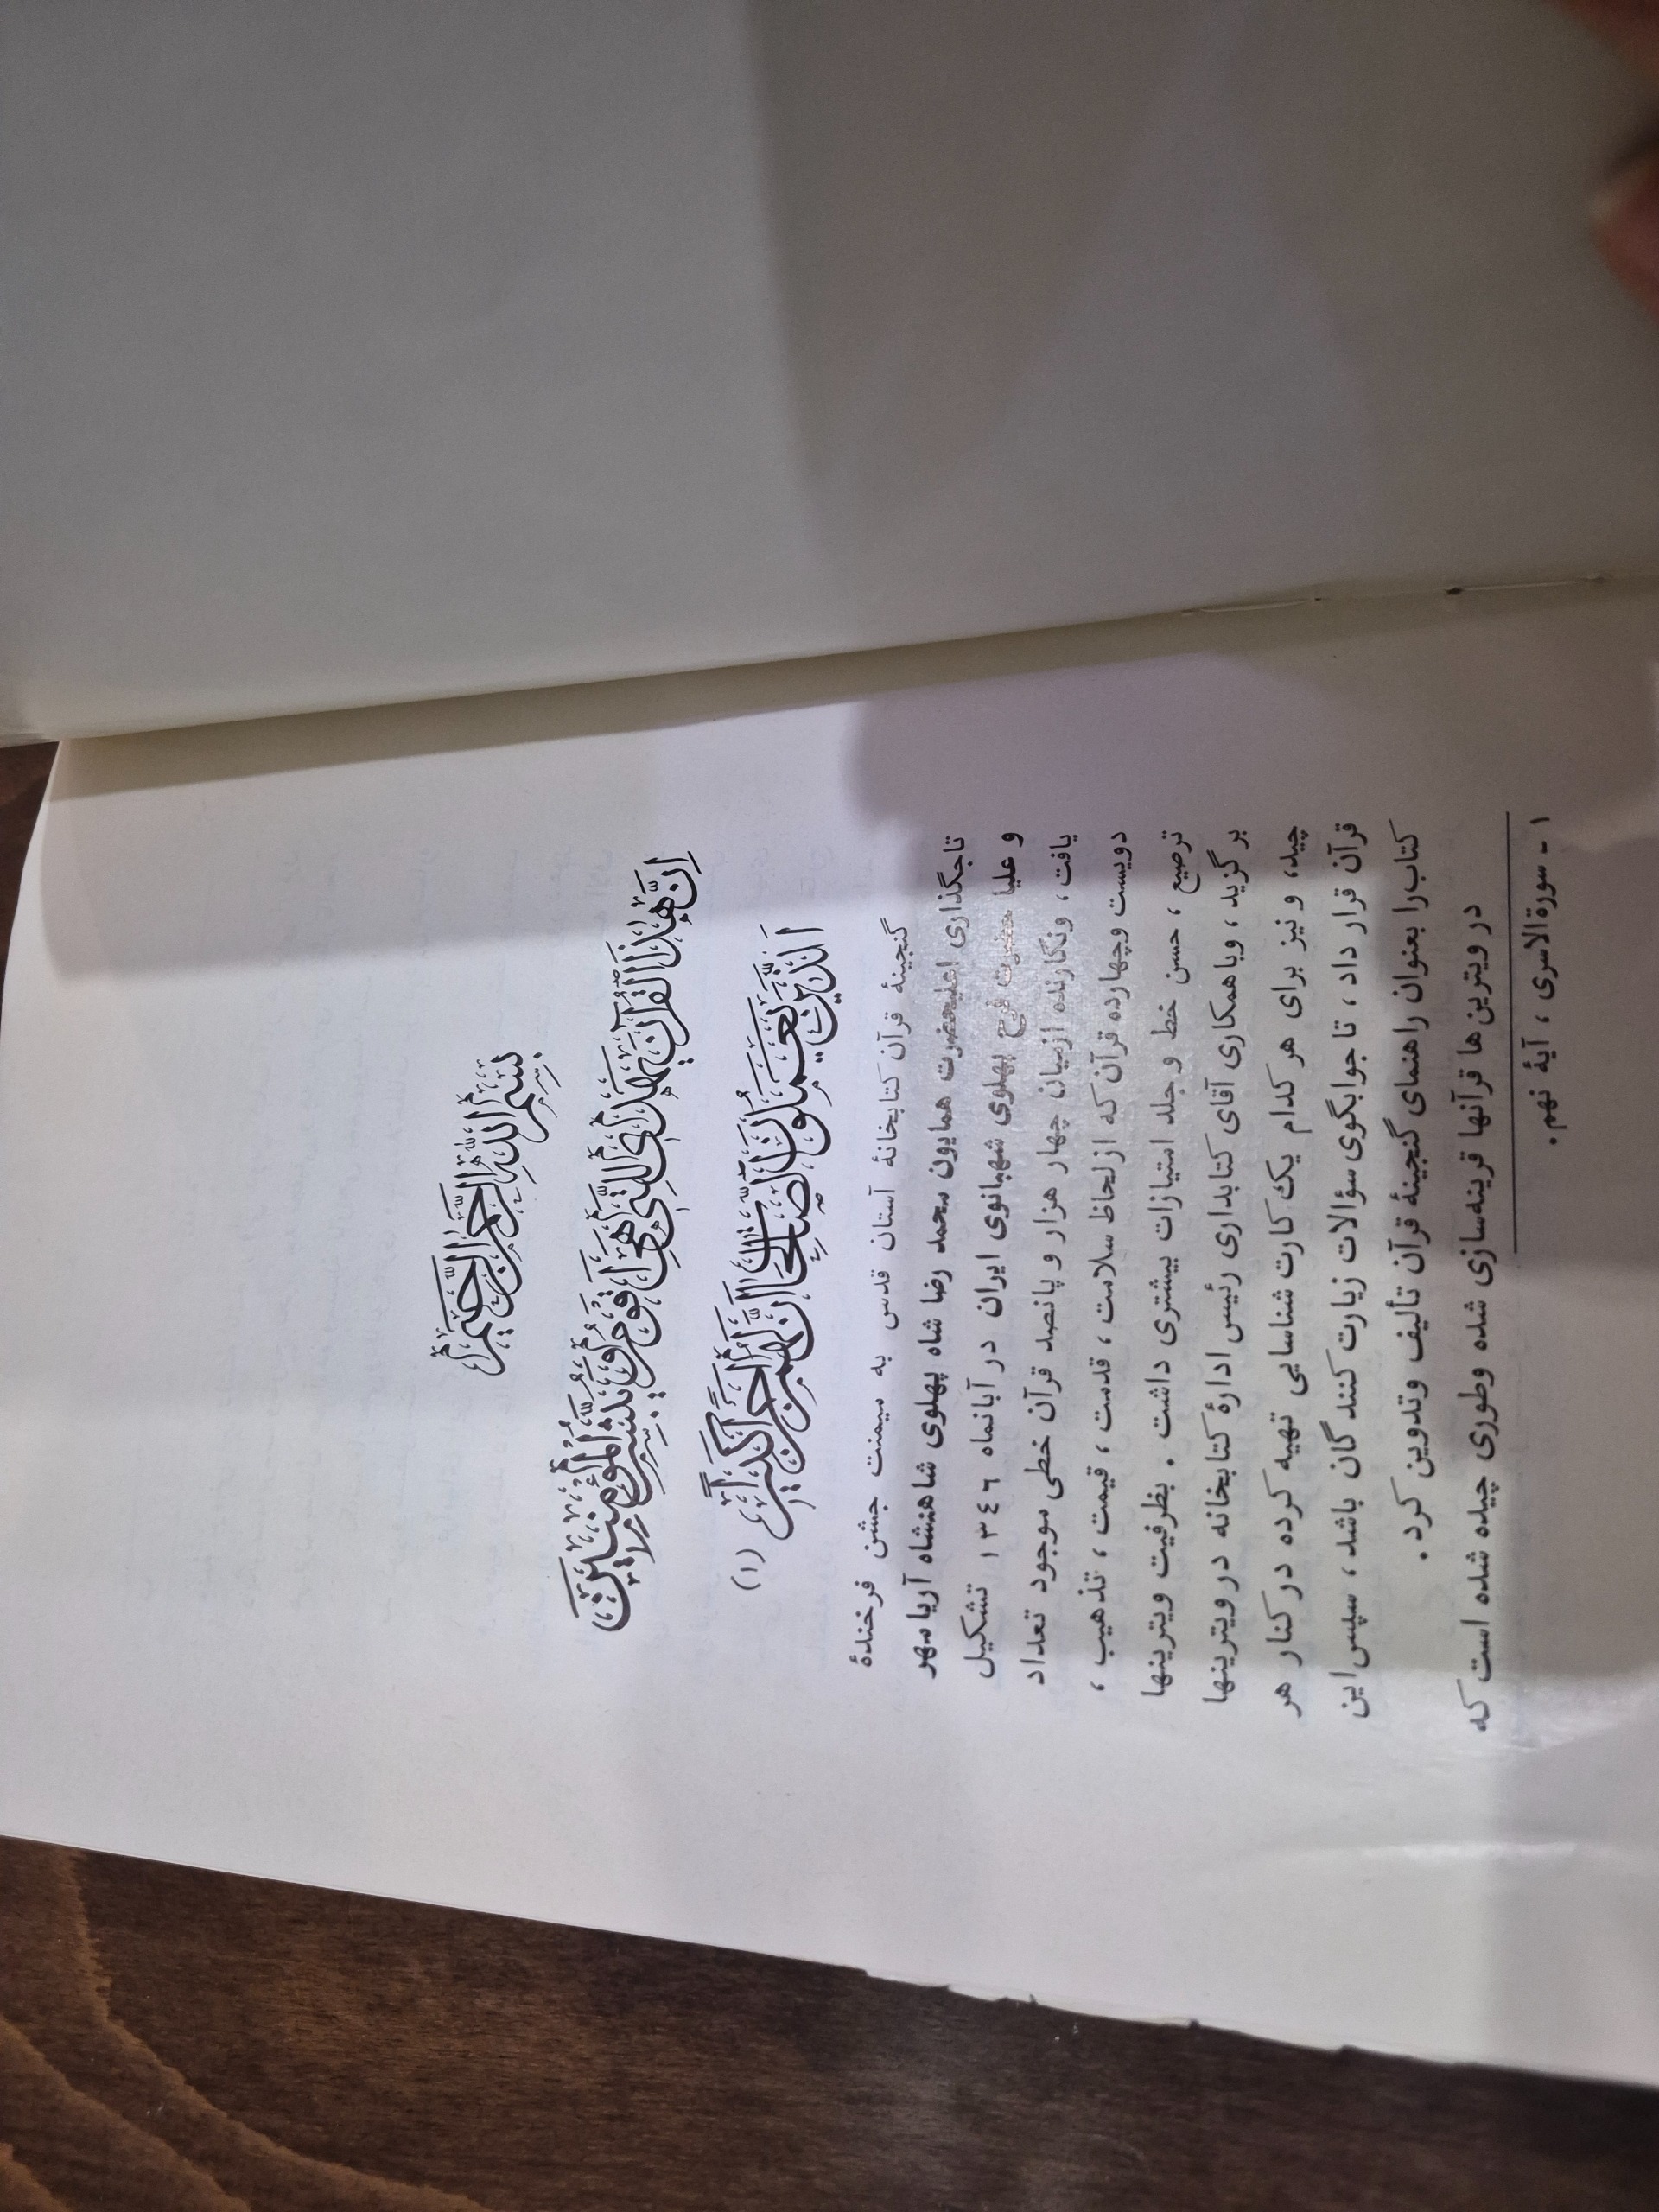 بِسْمِ اللَّهِ الرَّحْمٰنِ الرَّحيمِ
اِنَّ هٰذَا الْقُرْآنَ يَهْدى لِلَّتى هِىَ اَقْوَمُ وَ يُبَشِّرُ الْمُؤْمِنينَ
اَلَّذينَ يَعْمَلُونَ الصّالِحاتِ اَنَّ لَهُمْ اَجْراً كَبيراً (١)
گنجینهٔ قرآن کتابخانهٔ آستان قدس به میمنت جشن فرخندهٔ
تاجگذاری اعلیحضرت همایون محمد رضا شاه پهلوی شاهنشاه آریا مهر
و علیا حضرت فرح پهلوی شهبانوی ایران در آبانماه ١٣٤٦ تشکیل
یافت، ونگارنده ازمیان چهار هزار و پانصد قرآن خطی موجود تعداد
دویست وچهارده قرآن که ازلحاظ سلامت ، قدمت ، قیمت ، تذهیب ،
ترصیع ، حسن خط و جلد امتیازات بیشتری داشت . بظرفیت ویترینها
بر گزید ، وباهمکاری آقای کتابداری رئیس ادارهٔ کتابخانه در ویترینها
چید، و نیز برای هر کدام یک کارت شناسایی تهیه کرده در کنار هر
قرآن قرار داد ، تا جوابگوی سؤالات زیارت کنندگان باشد ، سپس این
کتاب را بعنوان راهنمای گنجینهٔ قرآن تألیف وتدوین کرد .
در ویترین ها قرآنها قرینه سازی شده وطوری چیده شده است که
١ - سورة الاسری ، آیهٔ نهم.